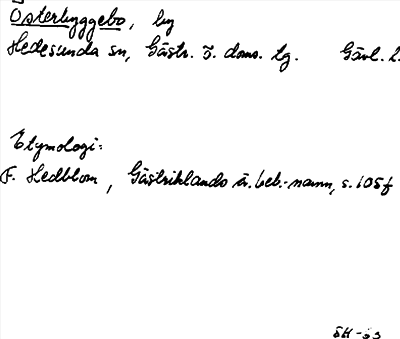 Österbyggebo, by
Hedesunda sn, Gästr. Ö. doms. tg. Gävl. l.
Etymologi:
F. Hedblom, Gästriklands ä. beb.-namn, s. 105 f